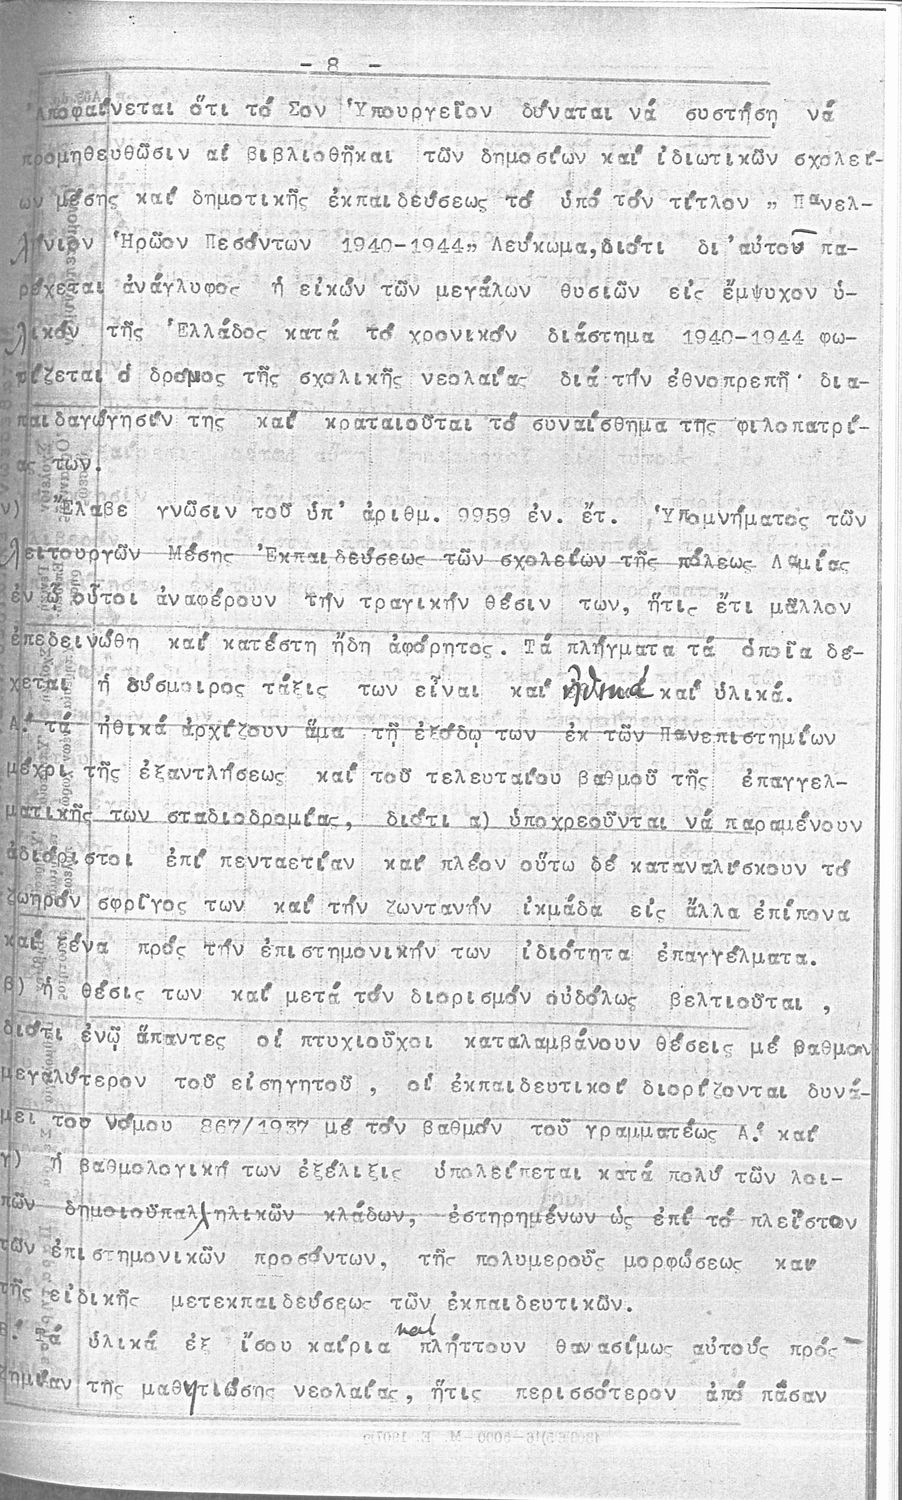 - 8 -
Ἀποφαίνεται ὅτι τό Σον Ὑπουργεῖον δύναται νά συστήσῃ νά
προμηθευθῶσιν αἱ βιβλιοθῆκαι τῶν δημοσίων καί ἰδιωτικῶν σχολεί-
ων μέσης καί δημοτικῆς ἐκπαιδεύσεως τό ὑπό τόν τίτλον „ Πανελ-
λήνιον Ἡρῶον Πεσόντων 1940-1944„ Λεύκωμα, διότι δι'αὐτοῦ πα-
ρέχεται ἀνάγλυφος ἡ εἰκών τῶν μεγάλων θυσιῶν εἰς ἔμψυχον ὑ-
λικόν τῆς Ἑλλάδος κατά τό χρονικόν διάστημα 1940-1944 φω-
τίζεται ὁ δρόμος τῆς σχολικῆς νεολαίας διά τήν ἐθνοπρεπῆ δια-
παιδαγώγησίν της καί κραταιοῦται τό συναίσθημα τῆς φιλοπατρί-
ας των.
ν) Ἔλαβε γνῶσιν τοῦ ὑπ' ἀριθμ. 9959 ἐν. ἔτ. Ὑπομνήματος τῶν
λειτουργῶν Μέσης Ἐκπαιδεύσεως τῶν σχολείων τῆς πόλεως Λαμίας
ἐν ᾧ οὗτοι ἀναφέρουν τήν τραγικήν θέσιν των, ἥτις ἔτι μᾶλλον
ἐπεδεινώθη καί κατέστη ἤδη ἀφόρητος. Τά πλήγματα τά ὁποῖα δέ-
χεται ἡ δύσμοιρος τάξις των εἶναι καί ἠθικά καί ὑλικά.
Α.' τά ἠθικά ἀρχίζουν ἅμα τῇ ἐξόδῳ των ἐκ τῶν Πανεπιστημίων
μέχρι τῆς ἐξαντλήσεως καί τοῦ τελευταίου βαθμοῦ τῆς ἐπαγγελ-
ματικῆς των σταδιοδρομίας, διότι α) ὑποχρεοῦνται νά παραμένουν
ἀδιόριστοι ἐπί πενταετίαν καί πλέον οὕτω δέ καταναλίσκουν τό
ζωηρόν σφρῖγος των καί τήν ζωντανήν ἰκμάδα εἰς ἄλλα ἐπίπονα
καί ξένα πρός τήν ἐπιστημονικήν των ἰδιότητα ἐπαγγέλματα.
β) ἡ θέσις των καί μετά τόν διορισμόν οὐδόλως βελτιοῦται ,
διότι ἐνῷ ἅπαντες οἱ πτυχιοῦχοι καταλαμβάνουν θέσεις μέ βαθμον
μεγαλύτερον τοῦ εἰσηγητοῦ , οἱ ἐκπαιδευτικοί διορίζονται δυνά-
μει του νόμου 867/1937 μέ τόν βαθμόν τοῦ γραμματέως Α.' καί
γ) ἡ βαθμολογική των ἐξέλιξις ὑπολείπεται κατά πολύ τῶν λοι-
πῶν δημοιοϋπαλληλικῶν κλάδων, ἐστηρημένων ὡς ἐπί τό πλεῖστον
τῶν ἐπιστημονικῶν προσόντων, τῆς πολυμεροῦς μορφώσεως καί
τῆς εἰδικῆς μετεκπαιδεύσεως τῶν ἐκπαιδευτικῶν.
Β.' Τά ὑλικά ἐξ ἴσου καίρια καί πλήττουν θανασίμως αὐτούς πρός
ζημίαν τῆς μαθητιώσης νεολαίας, ἥτις περισσότερον ἀπό πᾶσαν